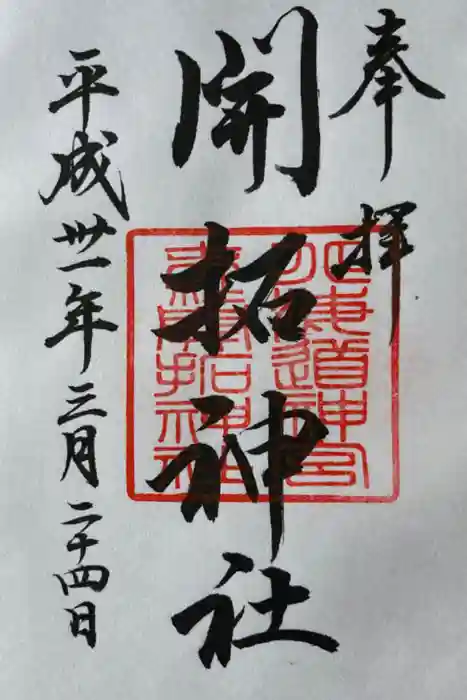 奉拝
開拓神社
平成卅一年三月二十四日
北海道神宮
末社開拓神社